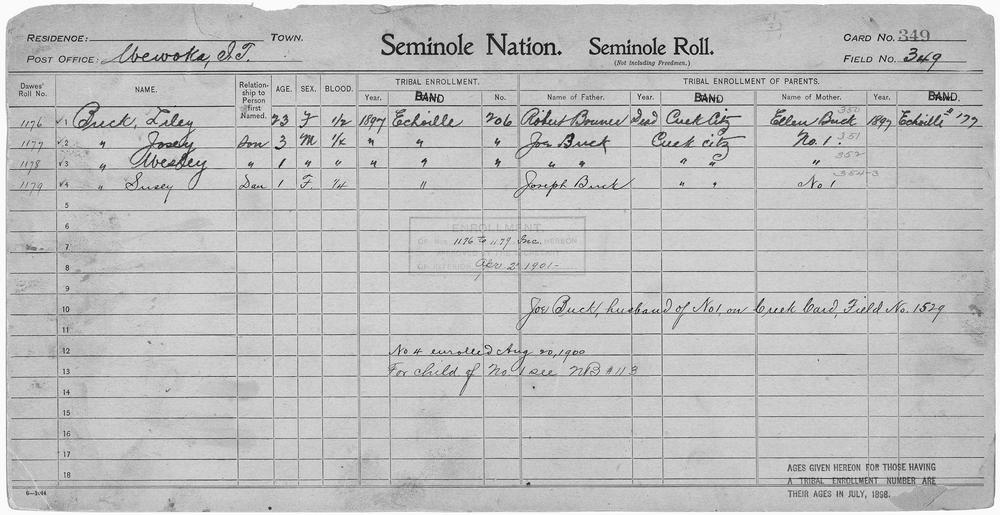 RESIDENCE: TOWN. Seminole Nation. Seminole Roll. CARD NO. 349
POST OFFICE: Wewoka, I.T. (Not including Freedmen.) FIELD NO. 349
Dawes' Roll No. NAME. Relationship to Person first Named. AGE. SEX. BLOOD. TRIBAL ENROLLMENT. Year. BAND No. TRIBAL ENROLLMENT OF PARENTS. Name of Father. Year. BAND Name of Mother. Year. BAND.
1176 √1 Buck, Liley 23 F 1/2 1897 Echoille 206 Robert Bruner Dead Creek Citz Ellen Buck 350 1897 Echoille
1177 √2 " Josey Son 3 M 1/4 " " " Joe Buck Creek citz No. 1. 351
1178 √3 " Wesley " 1 " " " " " " " " " " 352
1179 √4 " Susey Dau 1 F. 1/4 " Joseph Buck " " No 1
5
6
ENROLLMENT
7 1176 to 1179 Inc. HEREON
8 Apr 2 1901-
9
10 Joe Buck, husband of No 1, on Creek Card, Field No. 1529
11
12 No 4 enrolled Aug 20, 1900
13 For child of No. 1 see NB #113
14
15
16
17
18
AGES GIVEN HEREON FOR THOSE HAVING
A TRIBAL ENROLLMENT NUMBER ARE
THEIR AGES IN JULY, 1898.